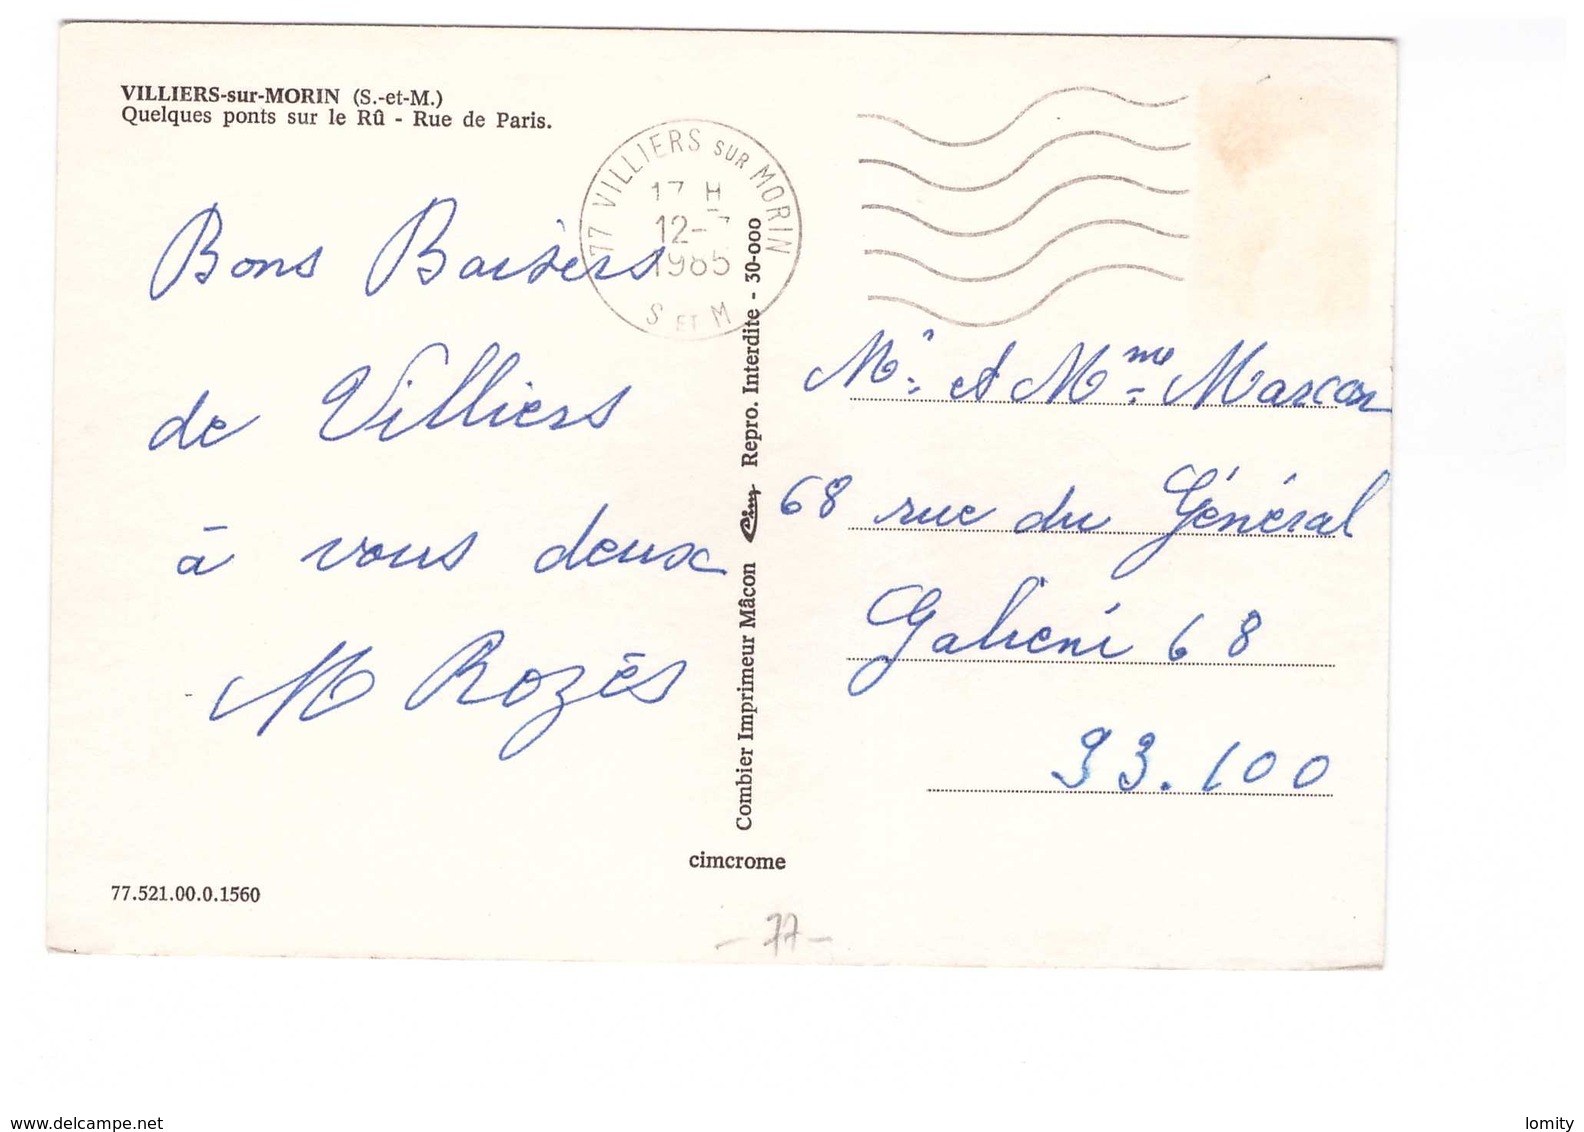 VILLIERS-sur-MORIN (S.-et-M.)
Quelques ponts sur le Rû - Rue de Paris.
77 VILLIERS SUR MORIN
17 H
12-7
1985
S ET M
Bons Baisers
de Villiers
à vous deux
M Rozès
Combier Imprimeur Mâcon Cim Repro. Interdite - 30-000
cimcrome
Mr et Mme Marcon
68 rue du Général
Galieni 68
93.100
77.521.00.0.1560
- 77 -
www.delcampe.net
lomity